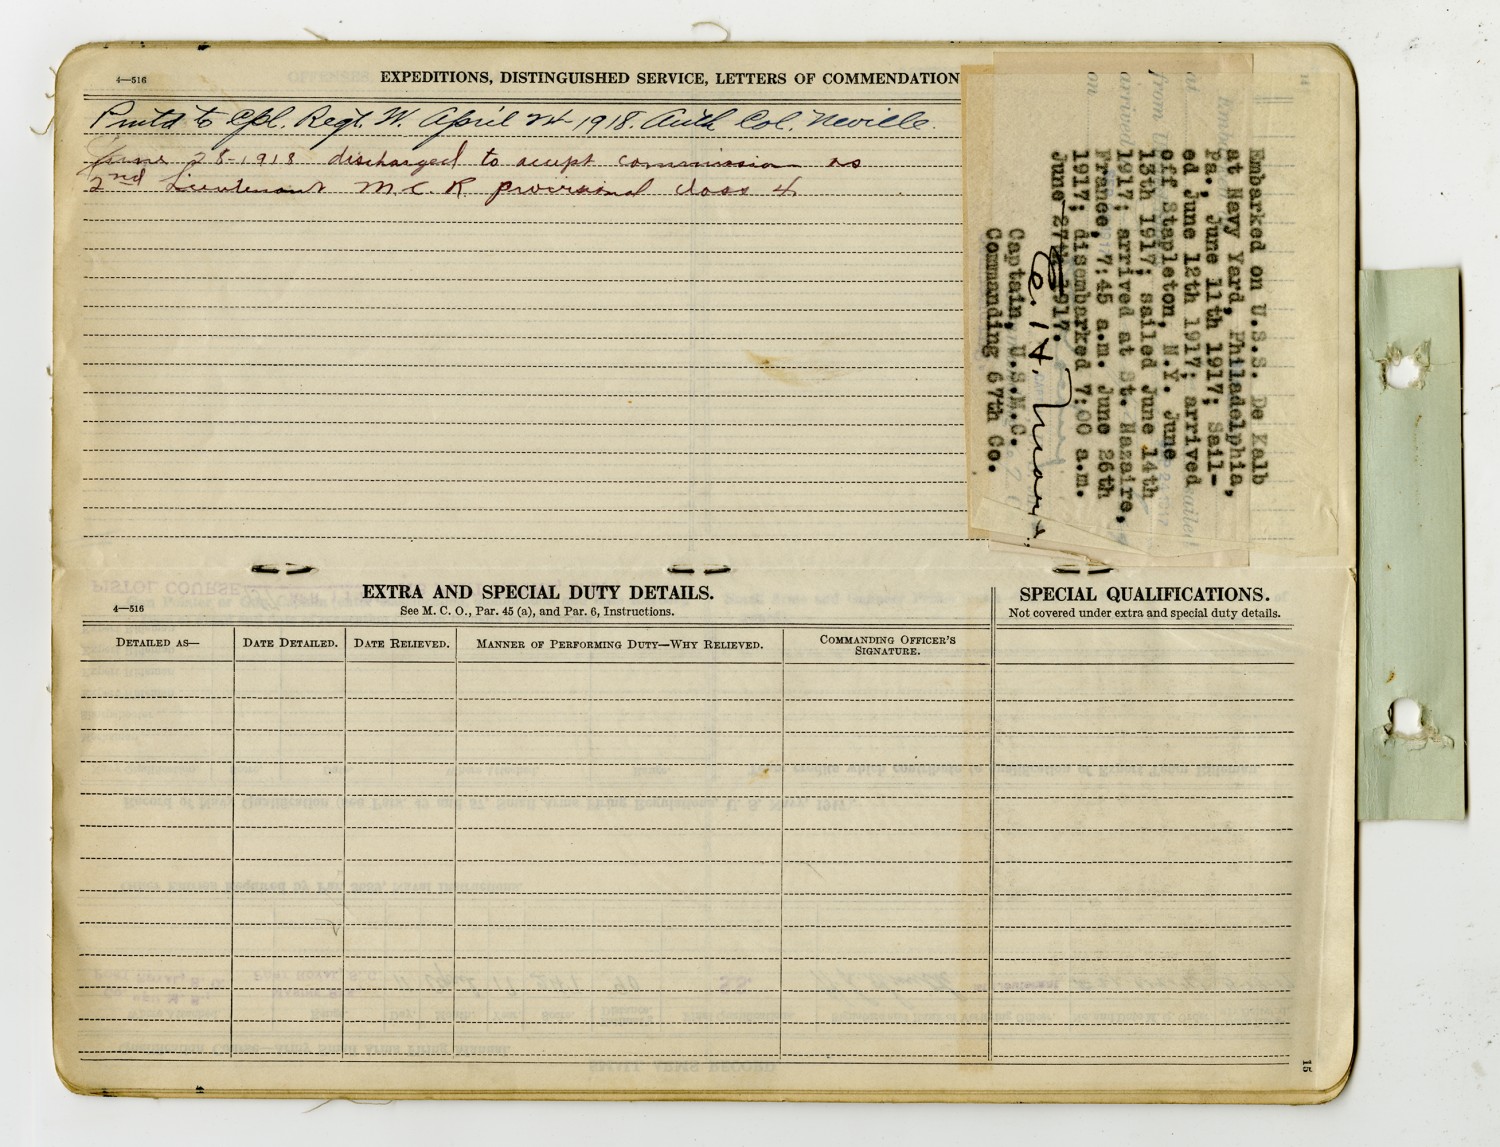 4—516
EXPEDITIONS, DISTINGUISHED SERVICE, LETTERS OF COMMENDATION
to Cpl. Regt. W. April 1918. Auth Col. Neville.
June 28-1918 discharged to accept commission as
2nd Lieutenant M.C.R. provisional class 4
Embarked on U.S.S. De Kalb
at Navy Yard, Philadelphia,
Pa., June 11th 1917; Sail-
ed June 12th 1917; arrived
off Stapleton, N.Y. June
13th 1917; sailed June 14th
1917; arrived at St. Nazaire,
France, 7:45 a.m. June 26th
1917; disembarked 7:00 a.m.
June 27th 1917.
Captain, U.S.M.C.
Commanding 67th Co.
EXTRA AND SPECIAL DUTY DETAILS.
4—516
See M. C. O., Par. 45 (a), and Par. 6, Instructions.
SPECIAL QUALIFICATIONS.
Not covered under extra and special duty details.
DETAILED AS—
DATE DETAILED.
DATE RELIEVED.
MANNER OF PERFORMING DUTY—WHY RELIEVED.
COMMANDING OFFICER'S
SIGNATURE.
15